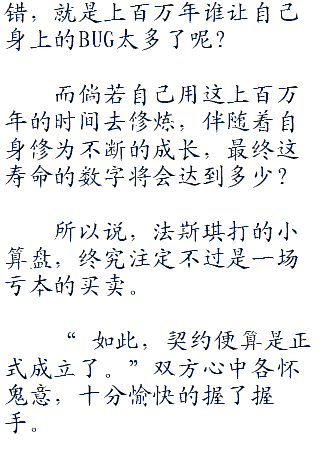 错，就是上百万年谁让自己
身上的BUG太多了呢？
而倘若自己用这上百万
年的时间去修炼，伴随着自
身修为不断的成长，最终这
寿命的数字将会达到多少？
所以说，法斯琪打的小
算盘，终究注定不过是一场
亏本的买卖。
“ 如此，契约便算是正
式成立了。”双方心中各怀
鬼意，十分愉快的握了握
手。